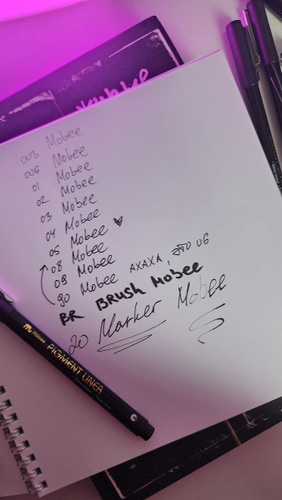 003 Mobee
005 Mobee
01 Mobee
02 Mobee
03 Mobee
04 Mobee
05 Mobee ♥
08 Mobee
09 Mobee АХАХА, это 06
90 Mobee
BR BRUSH Mobee
20 Marker Mobee
PIGMENT LINER